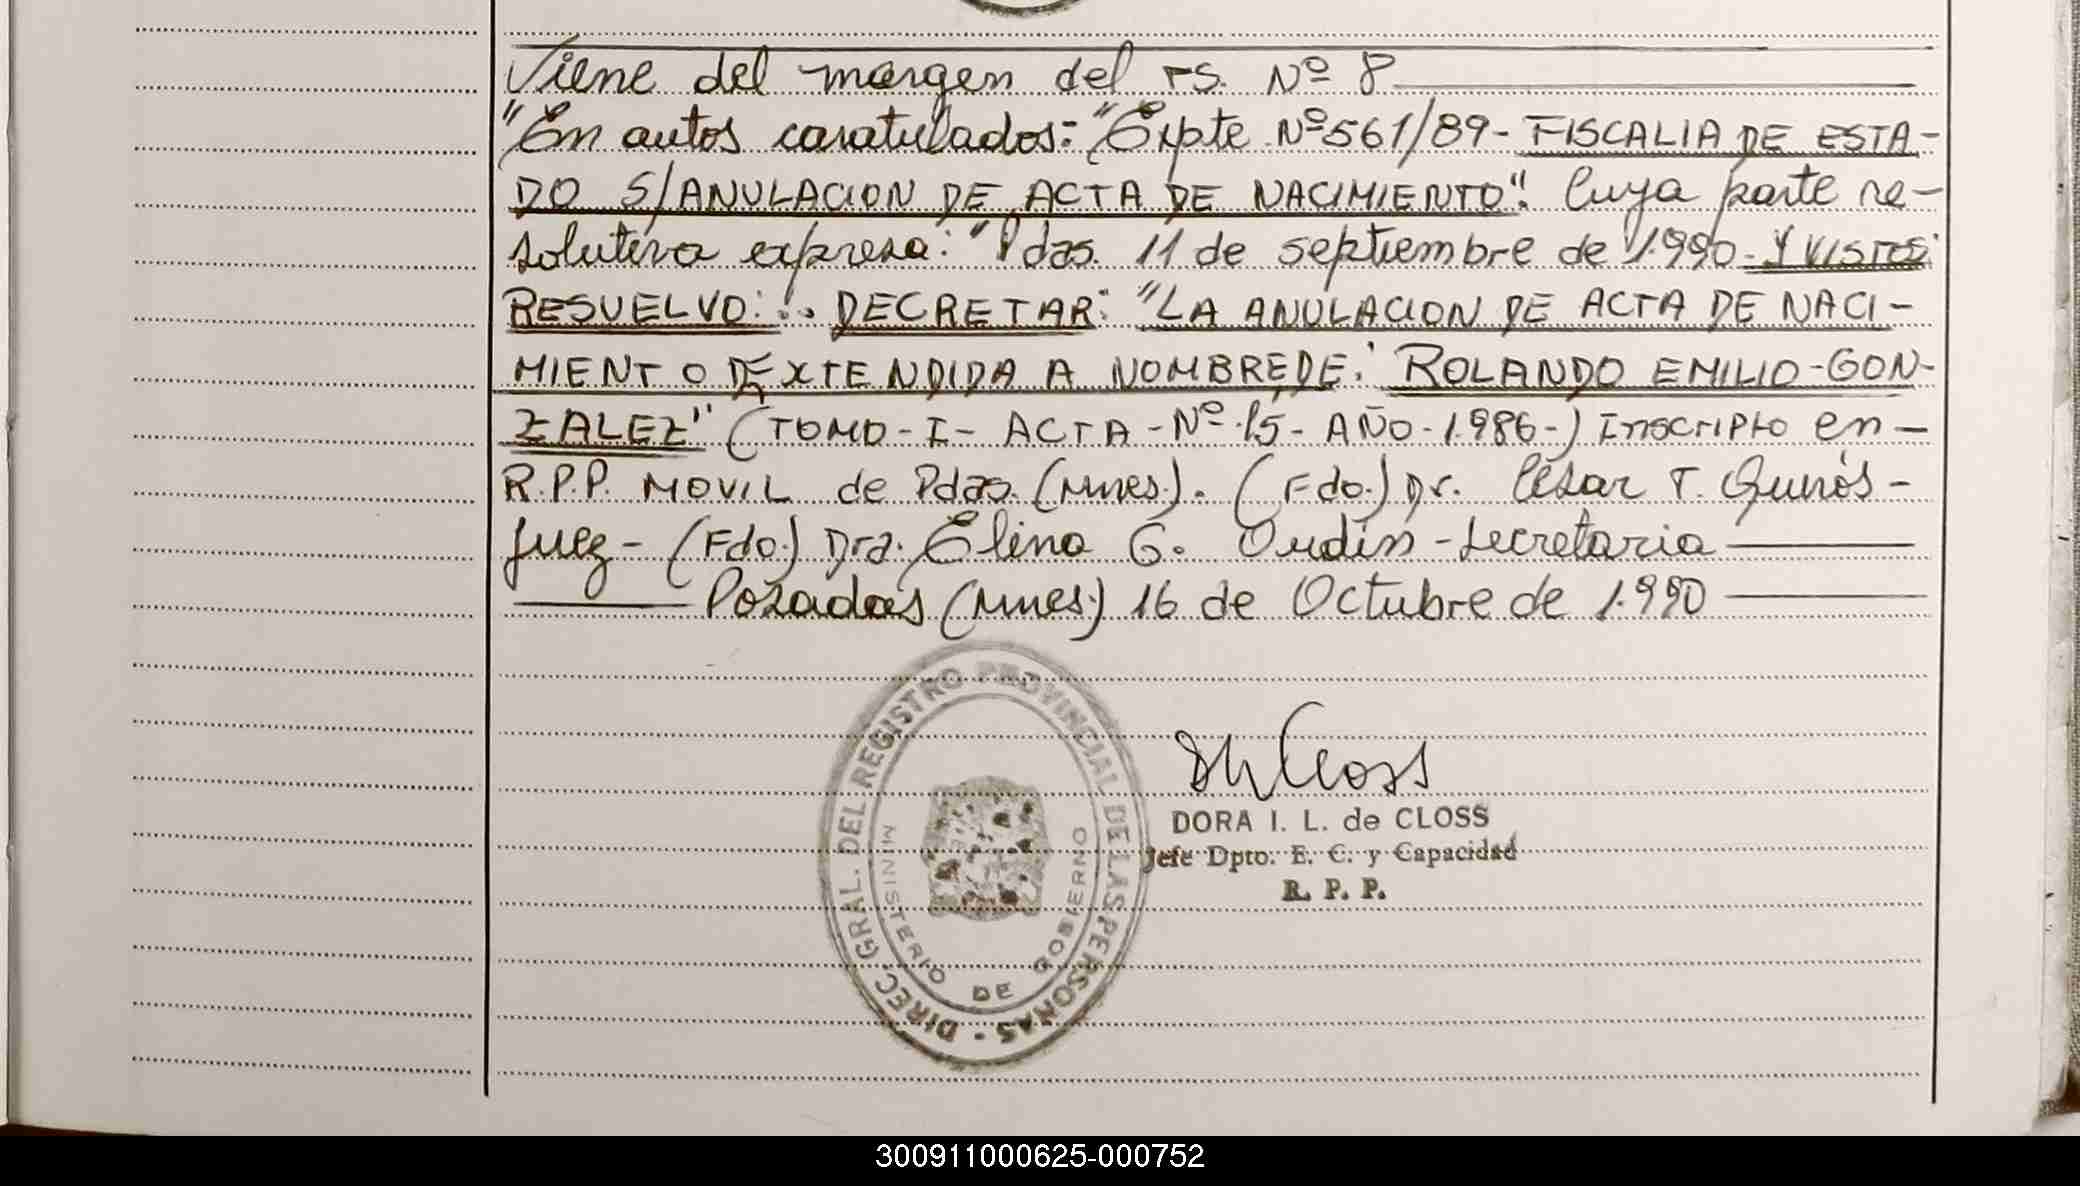 Viene del margen del rs. Nº 8
"En autos caratulados: "Expte Nº 561/89- FISCALIA DE ESTA-
DO S/ANULACION DE ACTA DE NACIMIENTO". Cuya parte re-
solutiva expresa: "Pdas. 11 de septiembre de 1.990- Y VISTOS:
RESUELVO: !.. DECRETAR: "LA ANULACION DE ACTA DE NACI-
MIENTO EXTENDIDA A NOMBRE DE: ROLANDO EMILIO-GON-
ZALEZ" (TOMO-I- ACTA-Nº 15- AÑO-1.986-) Inscripto en-
R.P.P. MOVIL de Pdas. (Mnes.). (Fdo.) Dr. César T.
Juez- (Fdo.) Dra. Elina G. -Secretaria
Posadas (Mnes.) 16 de Octubre de 1.990
DIREC. GRAL. DEL REGISTRO PROVINCIAL DE LAS PERSONAS -
MINISTERIO DE GOBIERNO
Closs
DORA I. L. de CLOSS
Jefe Dpto. E. C. y Capacidad
R. P. P.
300911000625-000752